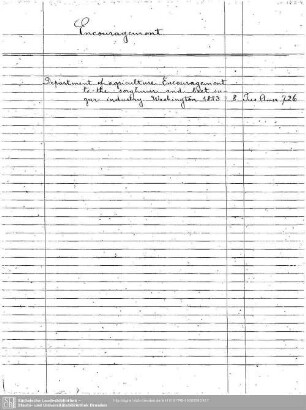 Encouragement
Department of agriculture. Encouragement
to the sorghum and beet su-
gar industry. Washington 1883 8. Tec. Amer. 726
Sächsische Landesbibliothek –
Staats- und Universitätsbibliothek Dresden